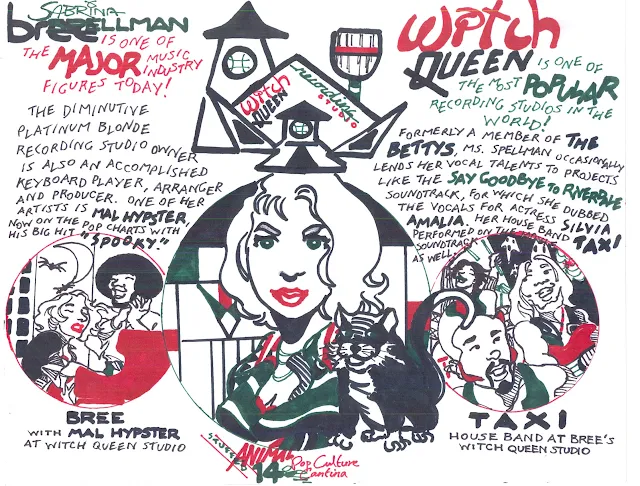 SABRINA
bree SPELLMAN
IS ONE OF
THE MAJOR MUSIC
INDUSTRY
FIGURES TODAY!
THE DIMINUTIVE
PLATINUM BLONDE
RECORDING STUDIO OWNER
IS ALSO AN ACCOMPLISHED
KEYBOARD PLAYER, ARRANGER
AND PRODUCER. ONE OF HER
ARTISTS IS MAL HYPSTER,
NOW ON THE POP CHARTS WITH
HIS BIG HIT "SPOOKY."
Witch
QUEEN
recording
STUDIO
Witch
QUEEN IS ONE OF
THE MOST POPULAR
RECORDING STUDIOS IN THE
WORLD!
FORMERLY A MEMBER OF THE
BETTYS, MS. SPELLMAN OCCASIONALLY
LENDS HER VOCAL TALENTS TO PROJECTS
LIKE THE SAY GOODBYE TO RIVERDALE
SOUNDTRACK, FOR WHICH SHE DUBBED
THE VOCALS FOR ACTRESS SILVIA
AMALIA. HER HOUSE BAND TAXI
PERFORMED ON THE
SOUNDTRACK
AS WELL.
BREE
WITH MAL HYPSTER
AT WITCH QUEEN STUDIO
ANIMAL
14
Pop Culture
Cantina
TAXI
HOUSE BAND AT BREE'S
WITCH QUEEN STUDIO